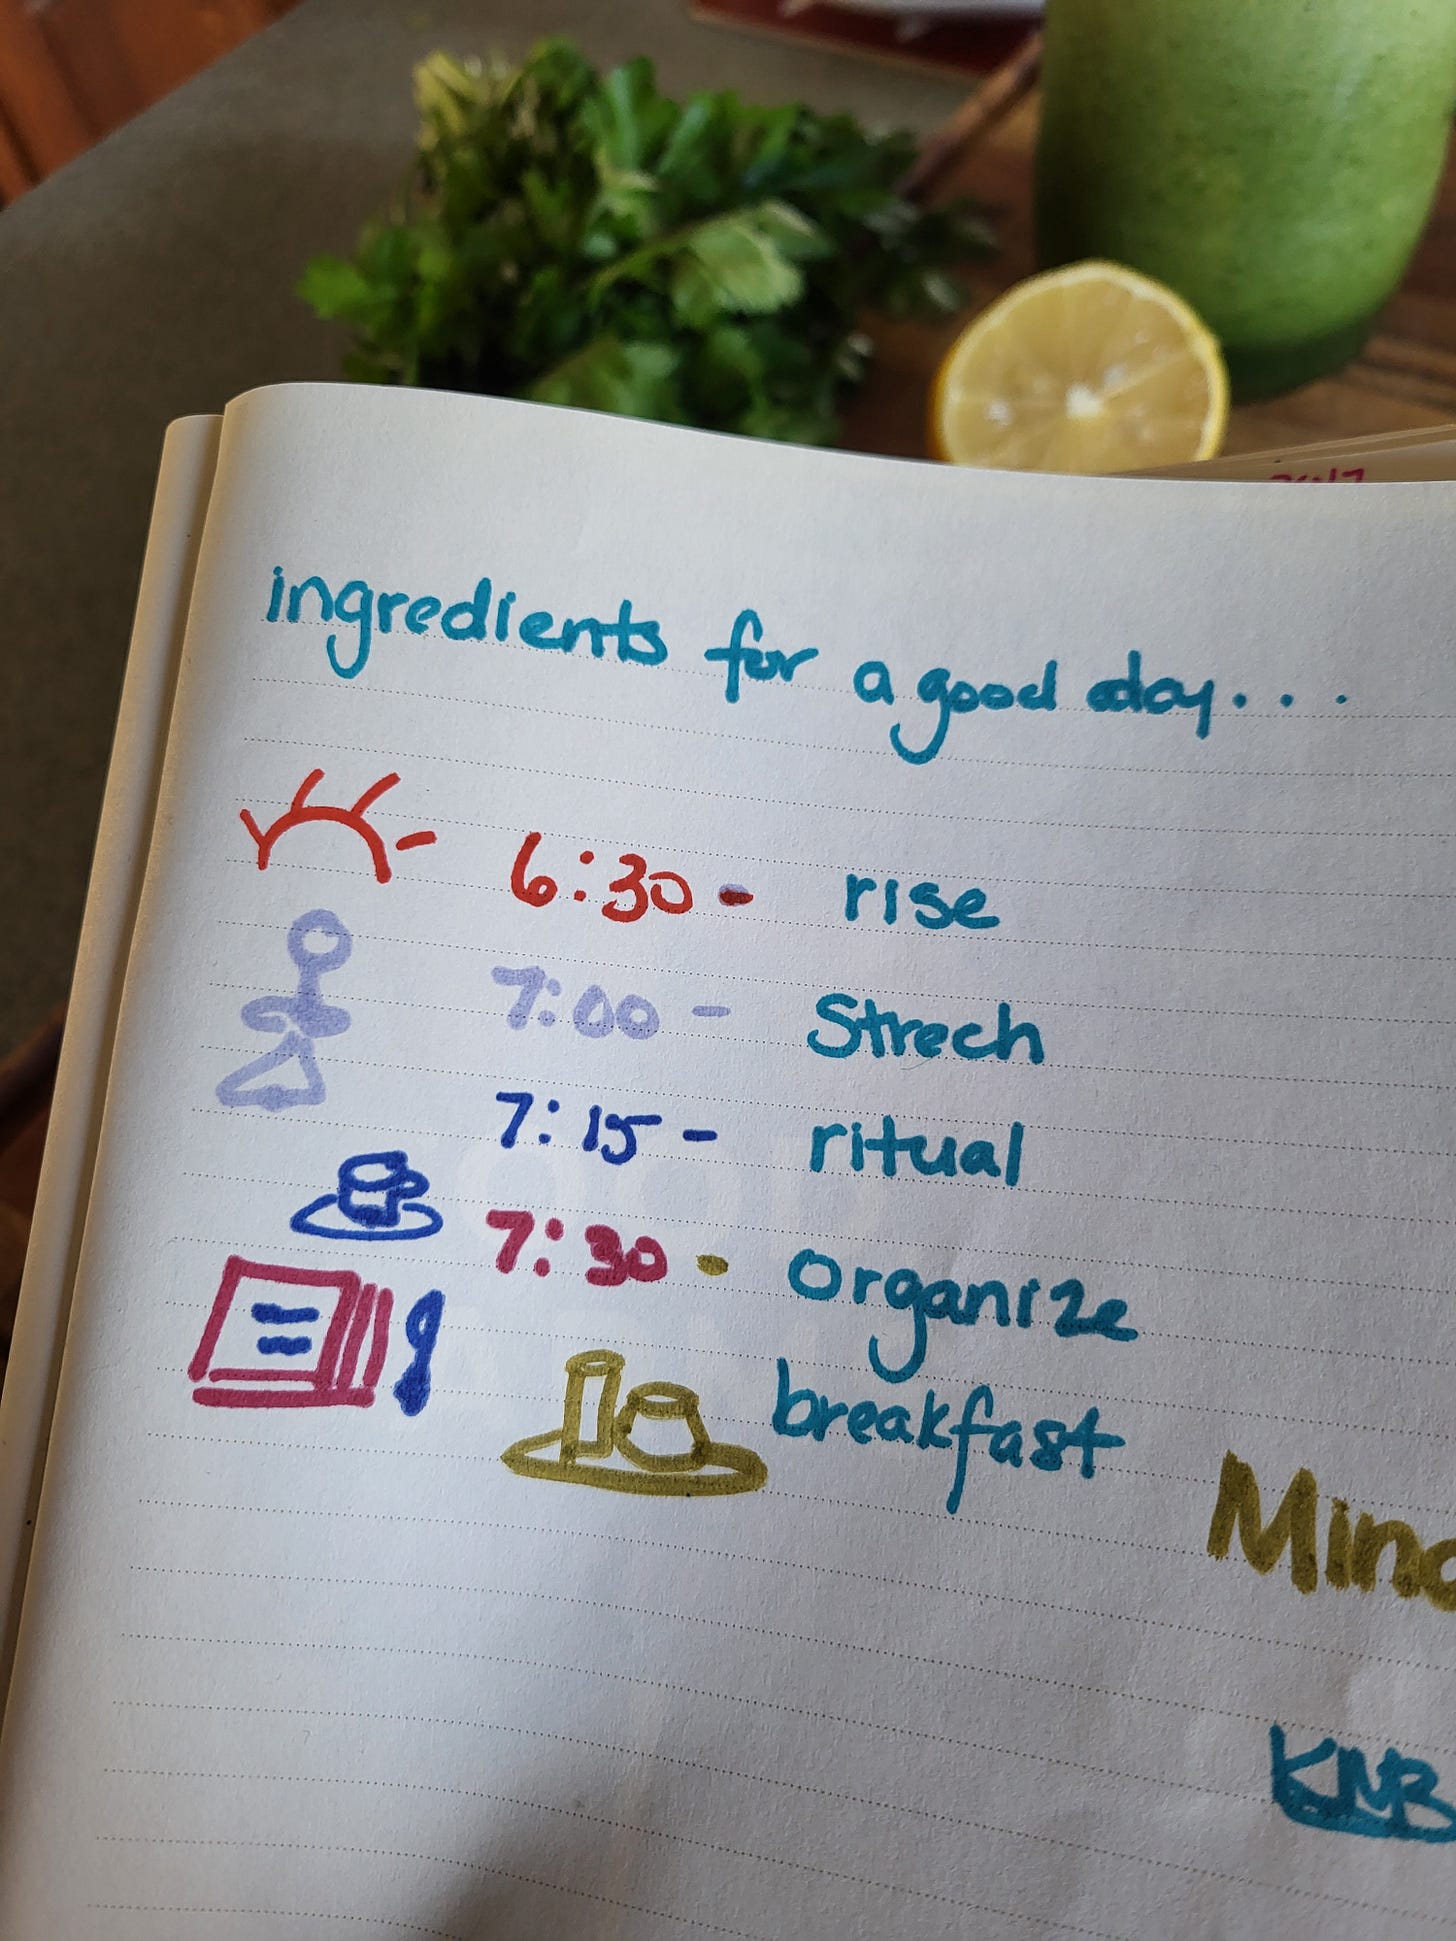 ingredients for a good day...
6:30 - rise
7:00 - Strech
7:15 - ritual
7:30 - organize
breakfast
KMB